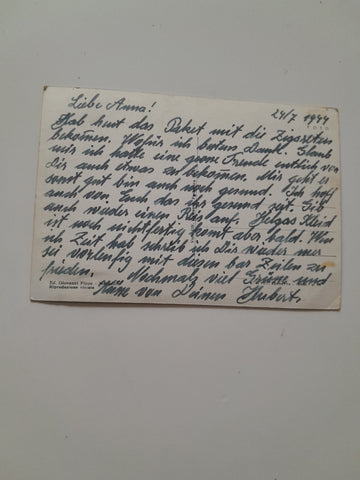 Liebe Anna! 24/7 1944
FOTO
Hab heut das Paket mit die Zigaretten
bekomen. Wofür ich bestens Danke. Glaub
mir ich hatte eine grose Freude entlich von
Dir auch etwas zu bekomen. Mir geht es
sonst gut bin auch noch gesund. Ich hoff
auch von Euch das ihr gesund seit. Gib
auch wieder einen Ruf auf. Helgas Kleid
ist noch nicht fertig komt aber bald. Wen
ich Zeit hab schreib ich Dir wieder mer
sei vorleufig mit diesen par Zeilen zu
frieden. Nochmalz viel Grüsse und
Küsse von Deinen Hubert.
Ed. Giovanni
Riproduzione vietata